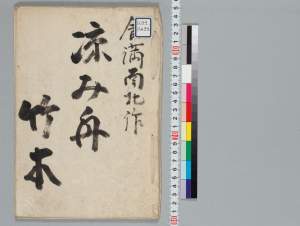 食満南北作
涼み舟
竹本